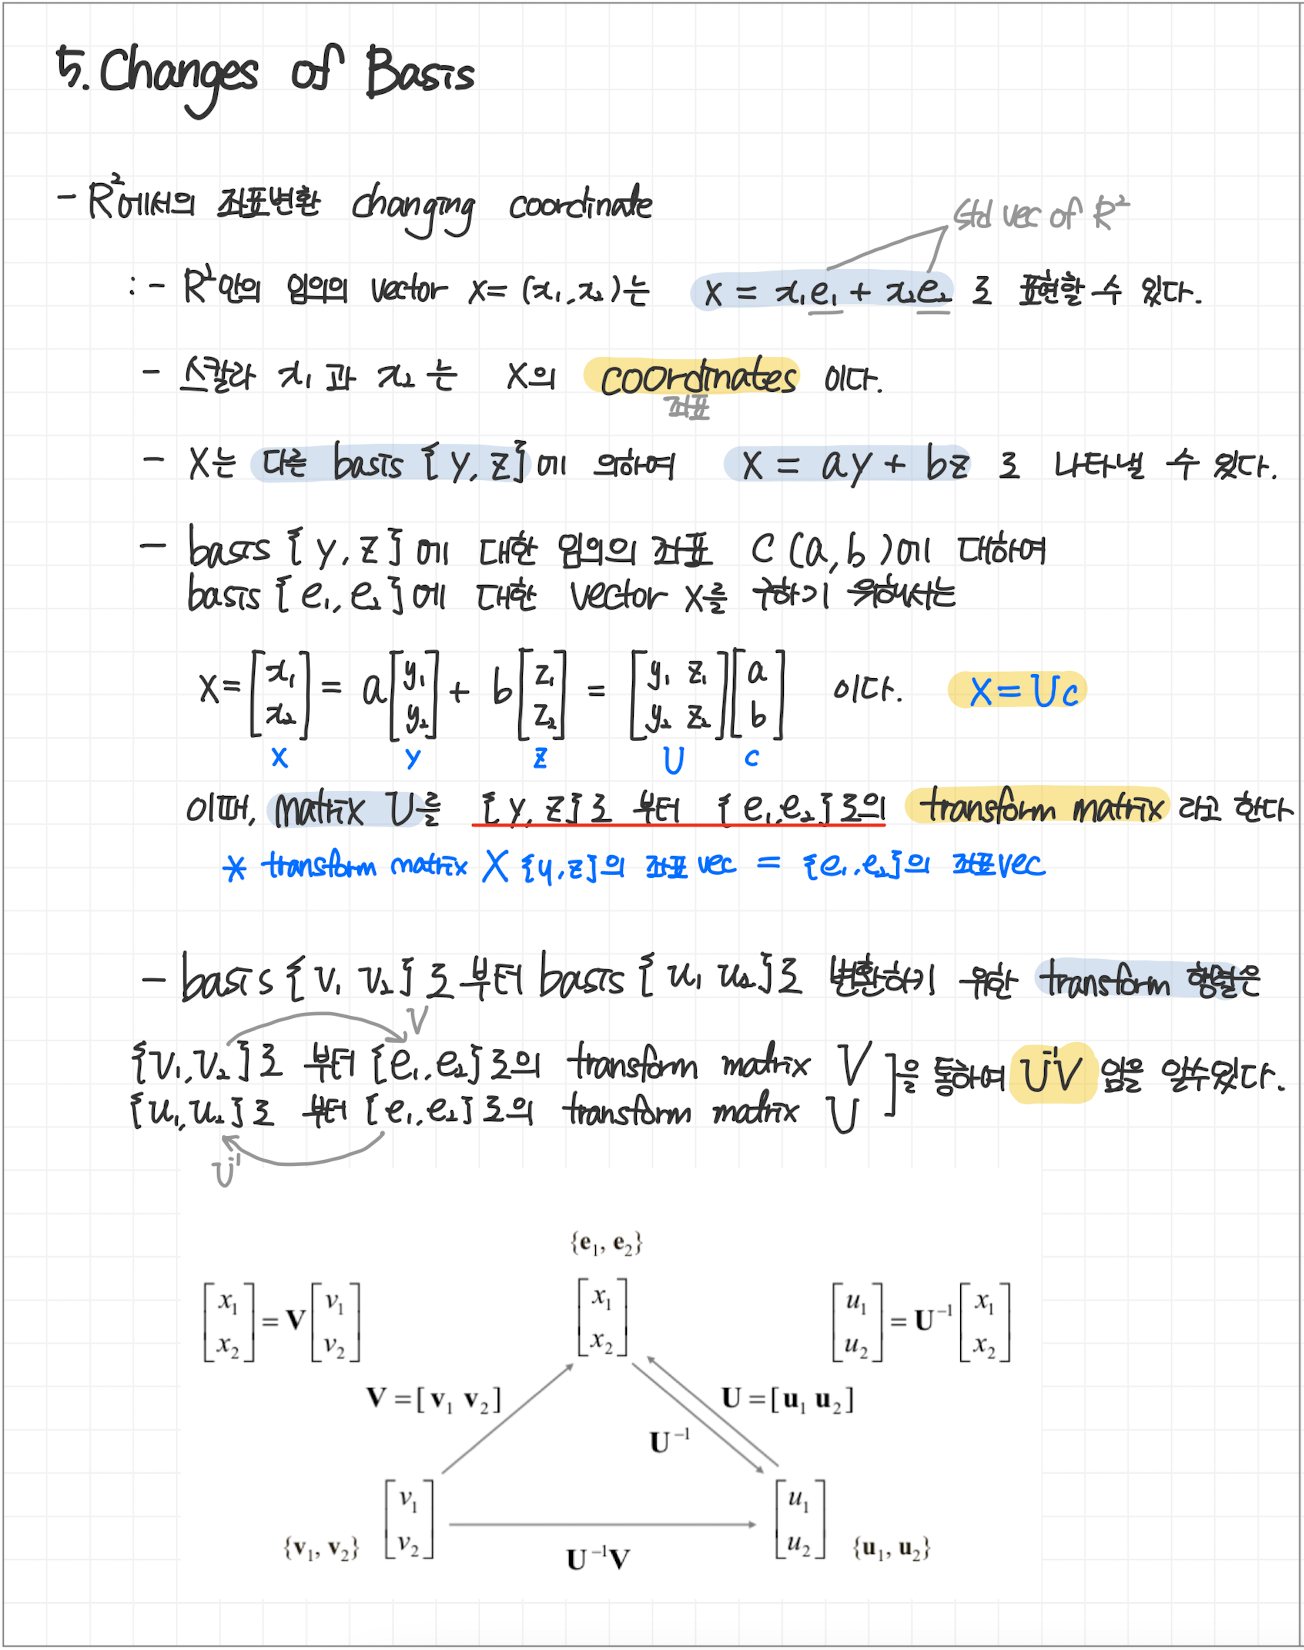 5. Changes of Basis
- R²에서의 좌표변환 changing coordinate
std vec of R²
: - R²안의 임의의 vector x = (x₁, x₂)는 x = x₁e₁ + x₂e₂ 로 표현할 수 있다.
- 스칼라 x₁ 과 x₂ 는 x의 coordinates 이다.
좌표
- x는 다른 basis {y, z}에 의하여 x = ay + bz 로 나타낼 수 있다.
- basis {y, z}에 대한 임의의 좌표 c (a, b)에 대하여
basis {e₁, e₂}에 대한 vector x를 구하기 위해서는
x = [x₁ x₂] = a[y₁ y₂] + b[z₁ z₂] = [y₁ z₁ y₂ z₂][a b] 이다. x = Uc
x y z U c
이때, matrix U를 {y, z}로 부터 {e₁, e₂}로의 transform matrix 라고 한다
* transform matrix X {y, z}의 좌표 vec = {e₁, e₂}의 좌표 vec
- basis {v₁ v₂}로 부터 basis {u₁ u₂}로 변환하기 위한 transform 행렬은
V
{v₁, v₂}로 부터 {e₁, e₂}로의 transform matrix V
{u₁, u₂}로 부터 {e₁, e₂}로의 transform matrix U
]을 통하여 U⁻¹V 임을 알수있다.
U⁻¹
{e₁, e₂}
[x₁ x₂] = V[v₁ v₂]
[x₁ x₂]
[u₁ u₂] = U⁻¹[x₁ x₂]
V = [v₁ v₂]
U = [u₁ u₂]
U⁻¹
{v₁, v₂} [v₁ v₂]
[u₁ u₂] {u₁, u₂}
U⁻¹V